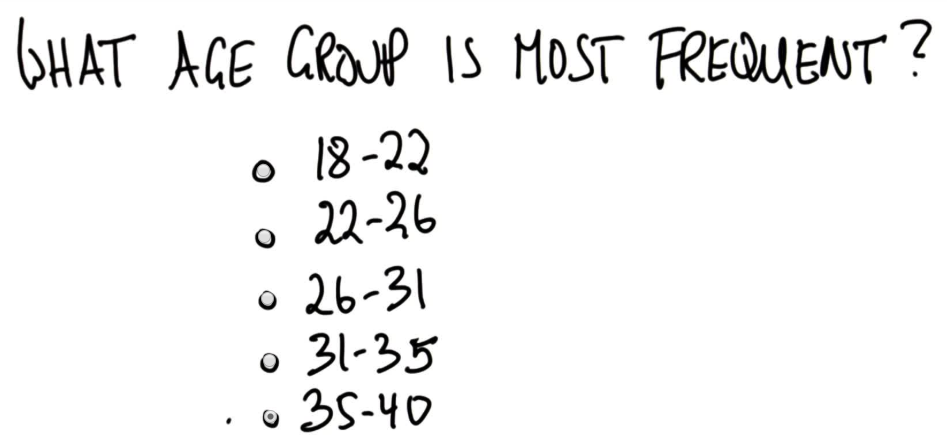 WHAT AGE GROUP IS MOST FREQUENT?
18-22
22-26
26-31
31-35
35-40